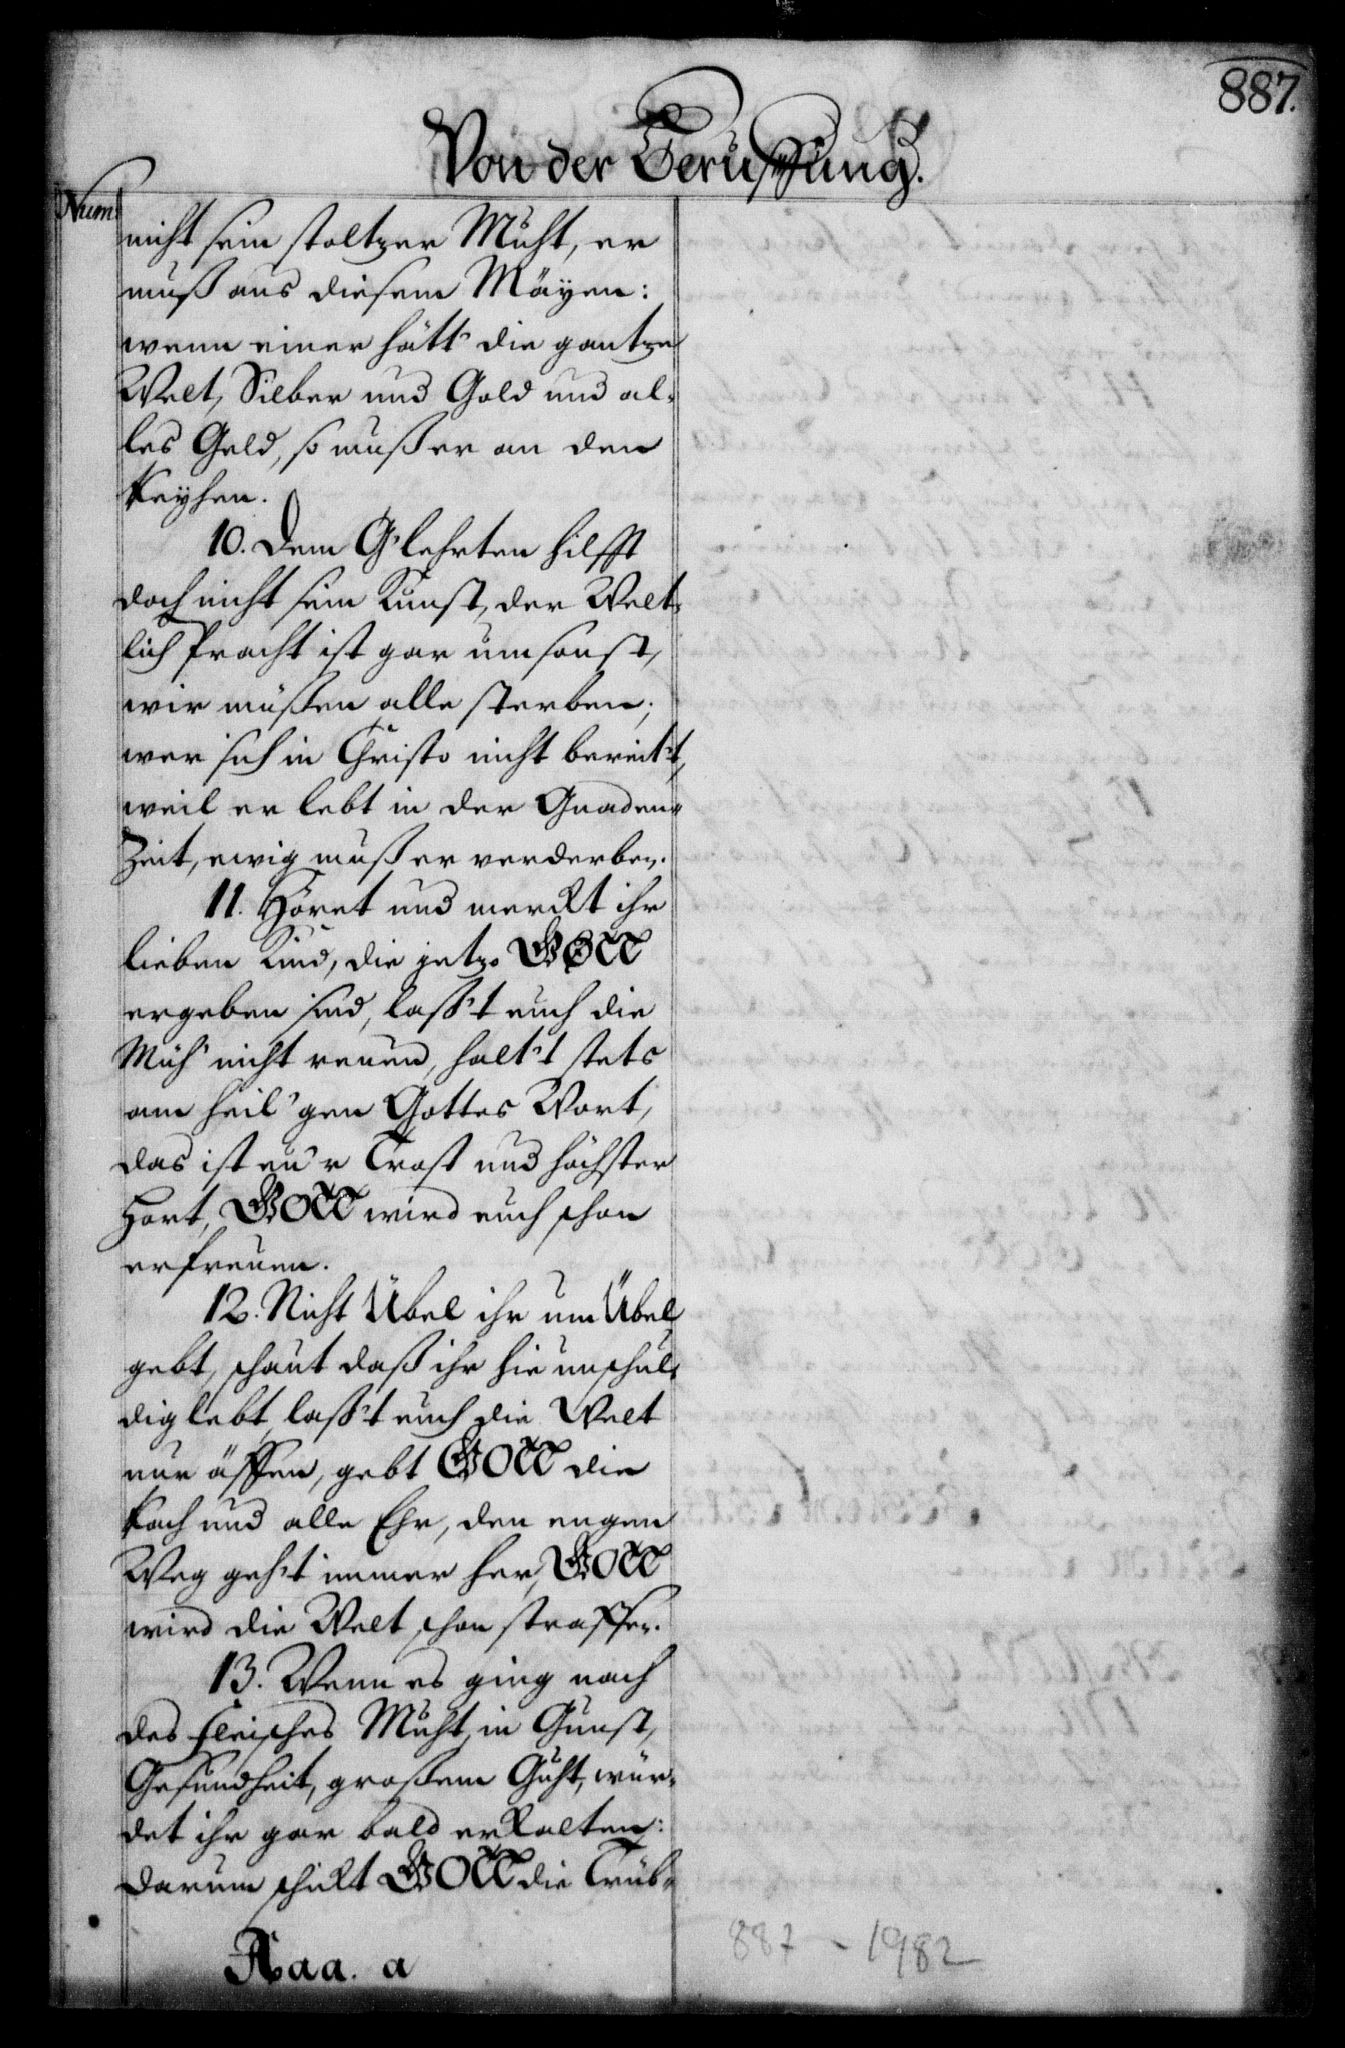 887.
Von der Beruffung.
Num
nicht sein stoltzer Muht, er
muß aus diesem Mäyen:
wenn einer hätt' die gantze
Welt, Silber und Gold und al-
les Geld, so muß er an den
Reyhen.
10. Dem G'lehrten hilfft
doch nicht sein Kunst, der Welt-
lich Pracht ist gar umsonst,
wir müßen alle sterben;
wer sich in Christo nicht bereit't,
weil er lebt in der Gnaden-
Zeit, ewig muß er verderben.
11. Höret und merckt ihr
lieben Kind, die jetzo GOTT
ergeben sind, laß't euch die
Müh' nicht reuen, halt't stets
am heil'gen Gottes Wort,
das ist eu'r Trost und höchster
Hort, GOTT wird euch schon
erfreuen.
12. Nicht Übel ihr um Übel
gebt, schaut daß ihr hie unschul-
dig lebt, laß't euch die Welt
nur äffen, gebt GOTT die
Rach und alle Ehr, den engen
Weg geh't immer her, GOTT
wird die Welt schon straffen.
13. Wenn es ging nach
des Fleisches Muht, in Gunst,
Gesundheit, großem Guht, wür-
det ihr gar bald erkalten:
darum schikt GOTT die Trüb-
Aaa. a
887 - 1982